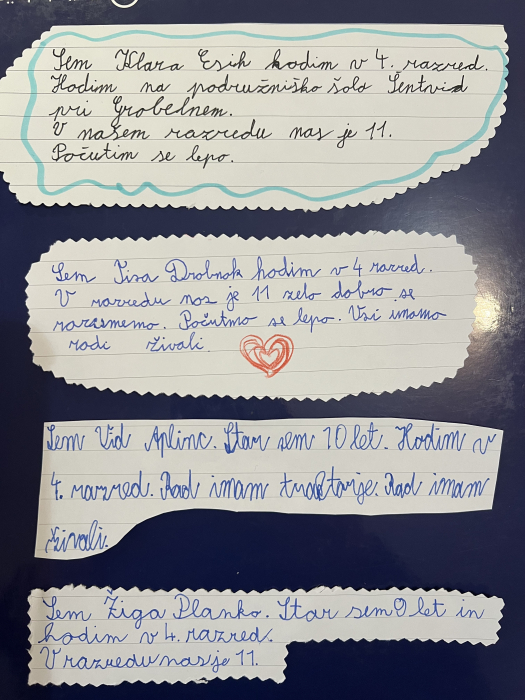 Sem Klara Esih hodim v 4. razred.
Hodim na podružniško šolo Šentvid
pri Grobelnem.
V našem razredu nas je 11.
Počutim se lepo.
Sem Tisa Drobnak hodim v 4 razred.
V razredu nas je 11 zelo dobro se
razumemo. Počutmo se lepo. Vsi imamo
radi živali.
Sem Vid Aplinc. Star sem 10 let. Hodim v
4. razred. Rad imam traktorje. Rad imam
živali.
Sem Žiga Planko. Star sem 9 let in
hodim v 4. razred.
V razredu nas je 11.